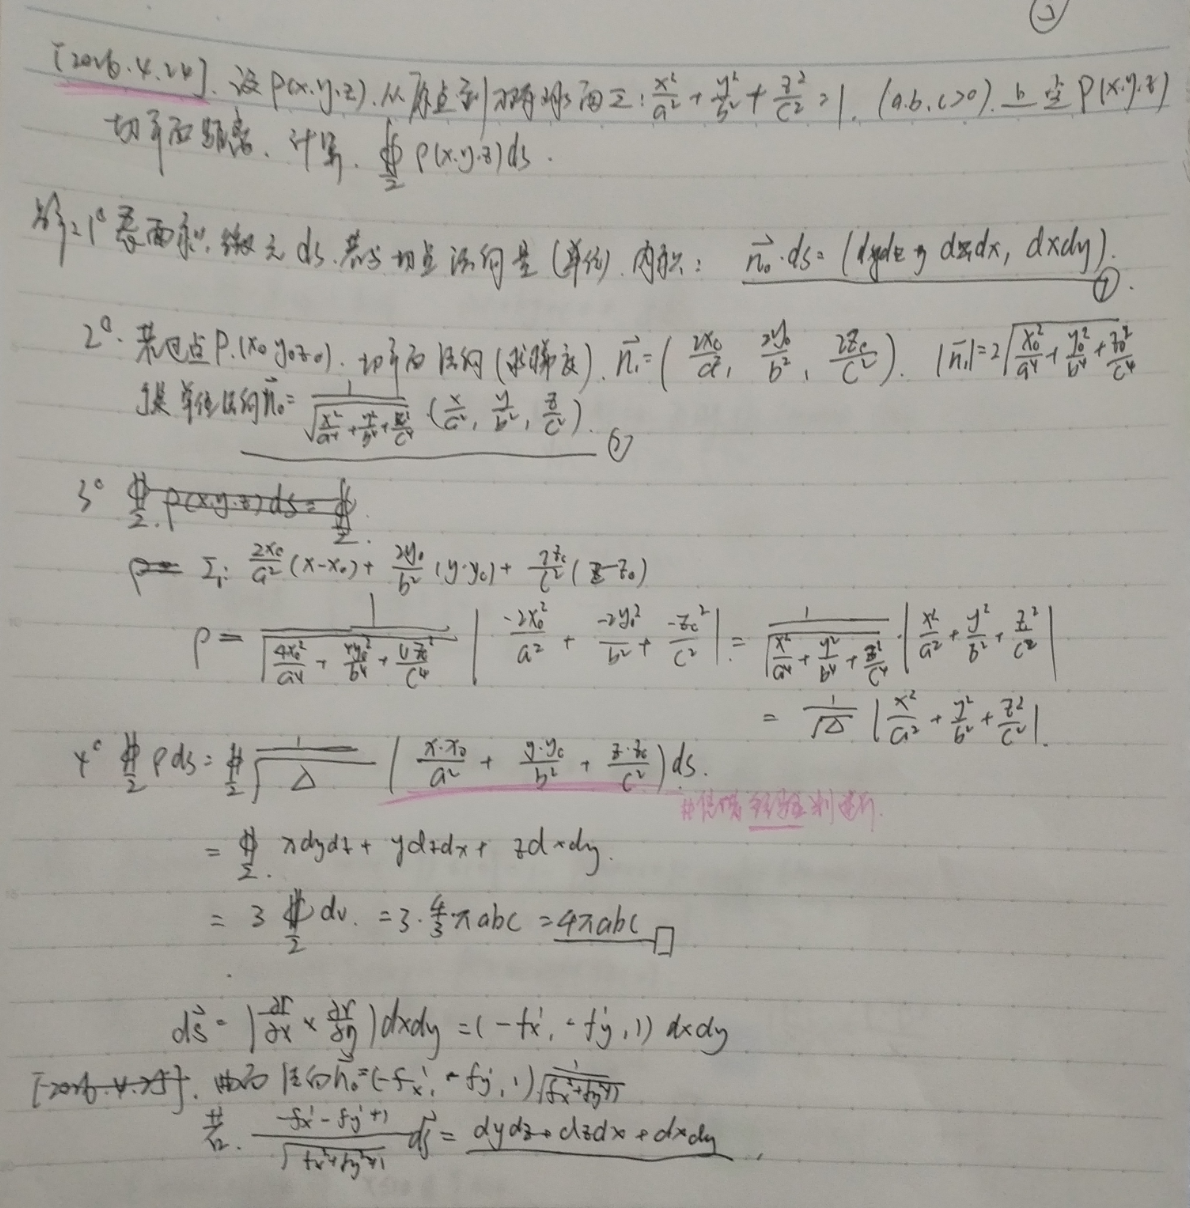 ②
[2026.4.24]. 设 ρ(x.y.z). 从原点到椭球面Σ: x²/a² + y²/b² + z²/c² = 1. (a.b.c>0). 上 P(x.y.z)
切平面距离. 计算. ∯_Σ ρ(x.y.z)ds.
解: 1° 面积. 微元 ds. 切点法向量(单位) 内积: n⃗₀·ds = (dydz, dzdx, dxdy). ①.
2°. 某已点P.(x₀ y₀ z₀). 切平面法向(求梯度). n⃗₁ = (2x₀/a², 2y₀/b², 2z₀/c²). |n⃗₁| = 2√(x₀²/a⁴ + y₀²/b⁴ + z₀²/c⁴)
于是 单位法向 n⃗₀ = 1/√(x²/a⁴ + y²/b⁴ + z²/c⁴) · (x/a², y/b², z/c²). ②
3° ∯_Σ. ρ(x.y.z)ds = ∯_Σ.
ρ= Σ₁: 2x₀/a² (x-x₀) + 2y₀/b² (y-y₀) + 2z₀/c² (z-z₀)
ρ = 1/√(4x₀²/a⁴ + 4y₀²/b⁴ + 4z₀²/c⁴) | -2x₀²/a² + -2y₀²/b² + -z₀²/c² | = 1/√(x²/a⁴ + y²/b⁴ + z²/c⁴) · | x²/a² + y²/b² + z²/c² |
= 1/√Δ | x²/a² + y²/b² + z²/c² |.
4° ∯_Σ ρds = ∯_Σ 1/√Δ ( x·x₀/a² + y·y₀/b² + z·z₀/c² ) ds.
= ∯_Σ. xdydz + ydzdx + zdxdy.
= 3 ∯_Σ dv. = 3·4/3·πabc = 4πabc □
ds⃗ = |∂r/∂x × ∂r/∂y| dxdy = (-fx', -fy', 1) dxdy
[2026.4.25]. 曲面 法向n⃗₀ = (-fx', -fy', 1) 1/√(fx²+fy²+1)
(-fx' - fy' + 1)/√(fx²+fy²+1) ds⃗ = dydz + dzdx + dxdy.